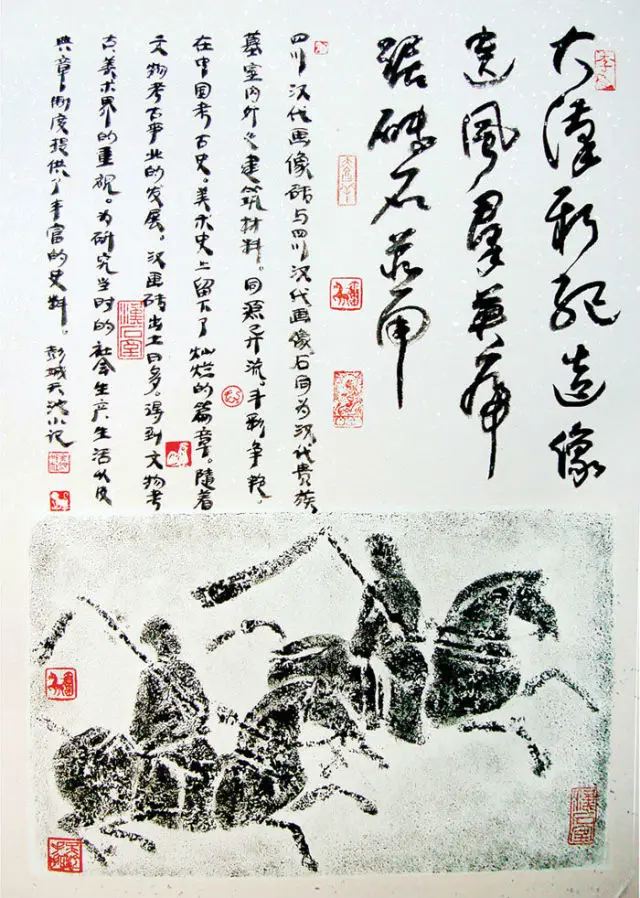 大漢造像
遗風羣英
砖石並用
四川汉代画像砖与四川汉代画像石同为汉代贵族
墓室内外之建筑材料。同源异流,争艳。
在中国考古史。美术史上留下了灿烂的篇章。随着
文物考古事业的发展。汉画砖出土日多。得到文物考
古、美术界的重视。为研究当时的社会生产生活以及
典章制度提供了丰富的史料。彭城天小记
漢石室
漢石室